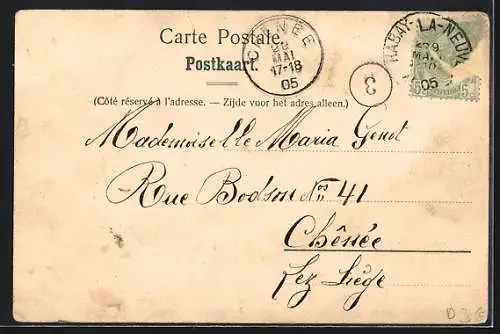 Carte Postale
Postkaart.
(Côté réservé à l'adresse. — Zijde voor het adres alleen.)
CHÊNÉE
29
MAI
17-18
05
HABAY-LA-NEUVE
29
MAI
05
3
5 5
Mademoiselle Maria Genot
Rue Bodson Nos 41
Chênée
Lez Liège